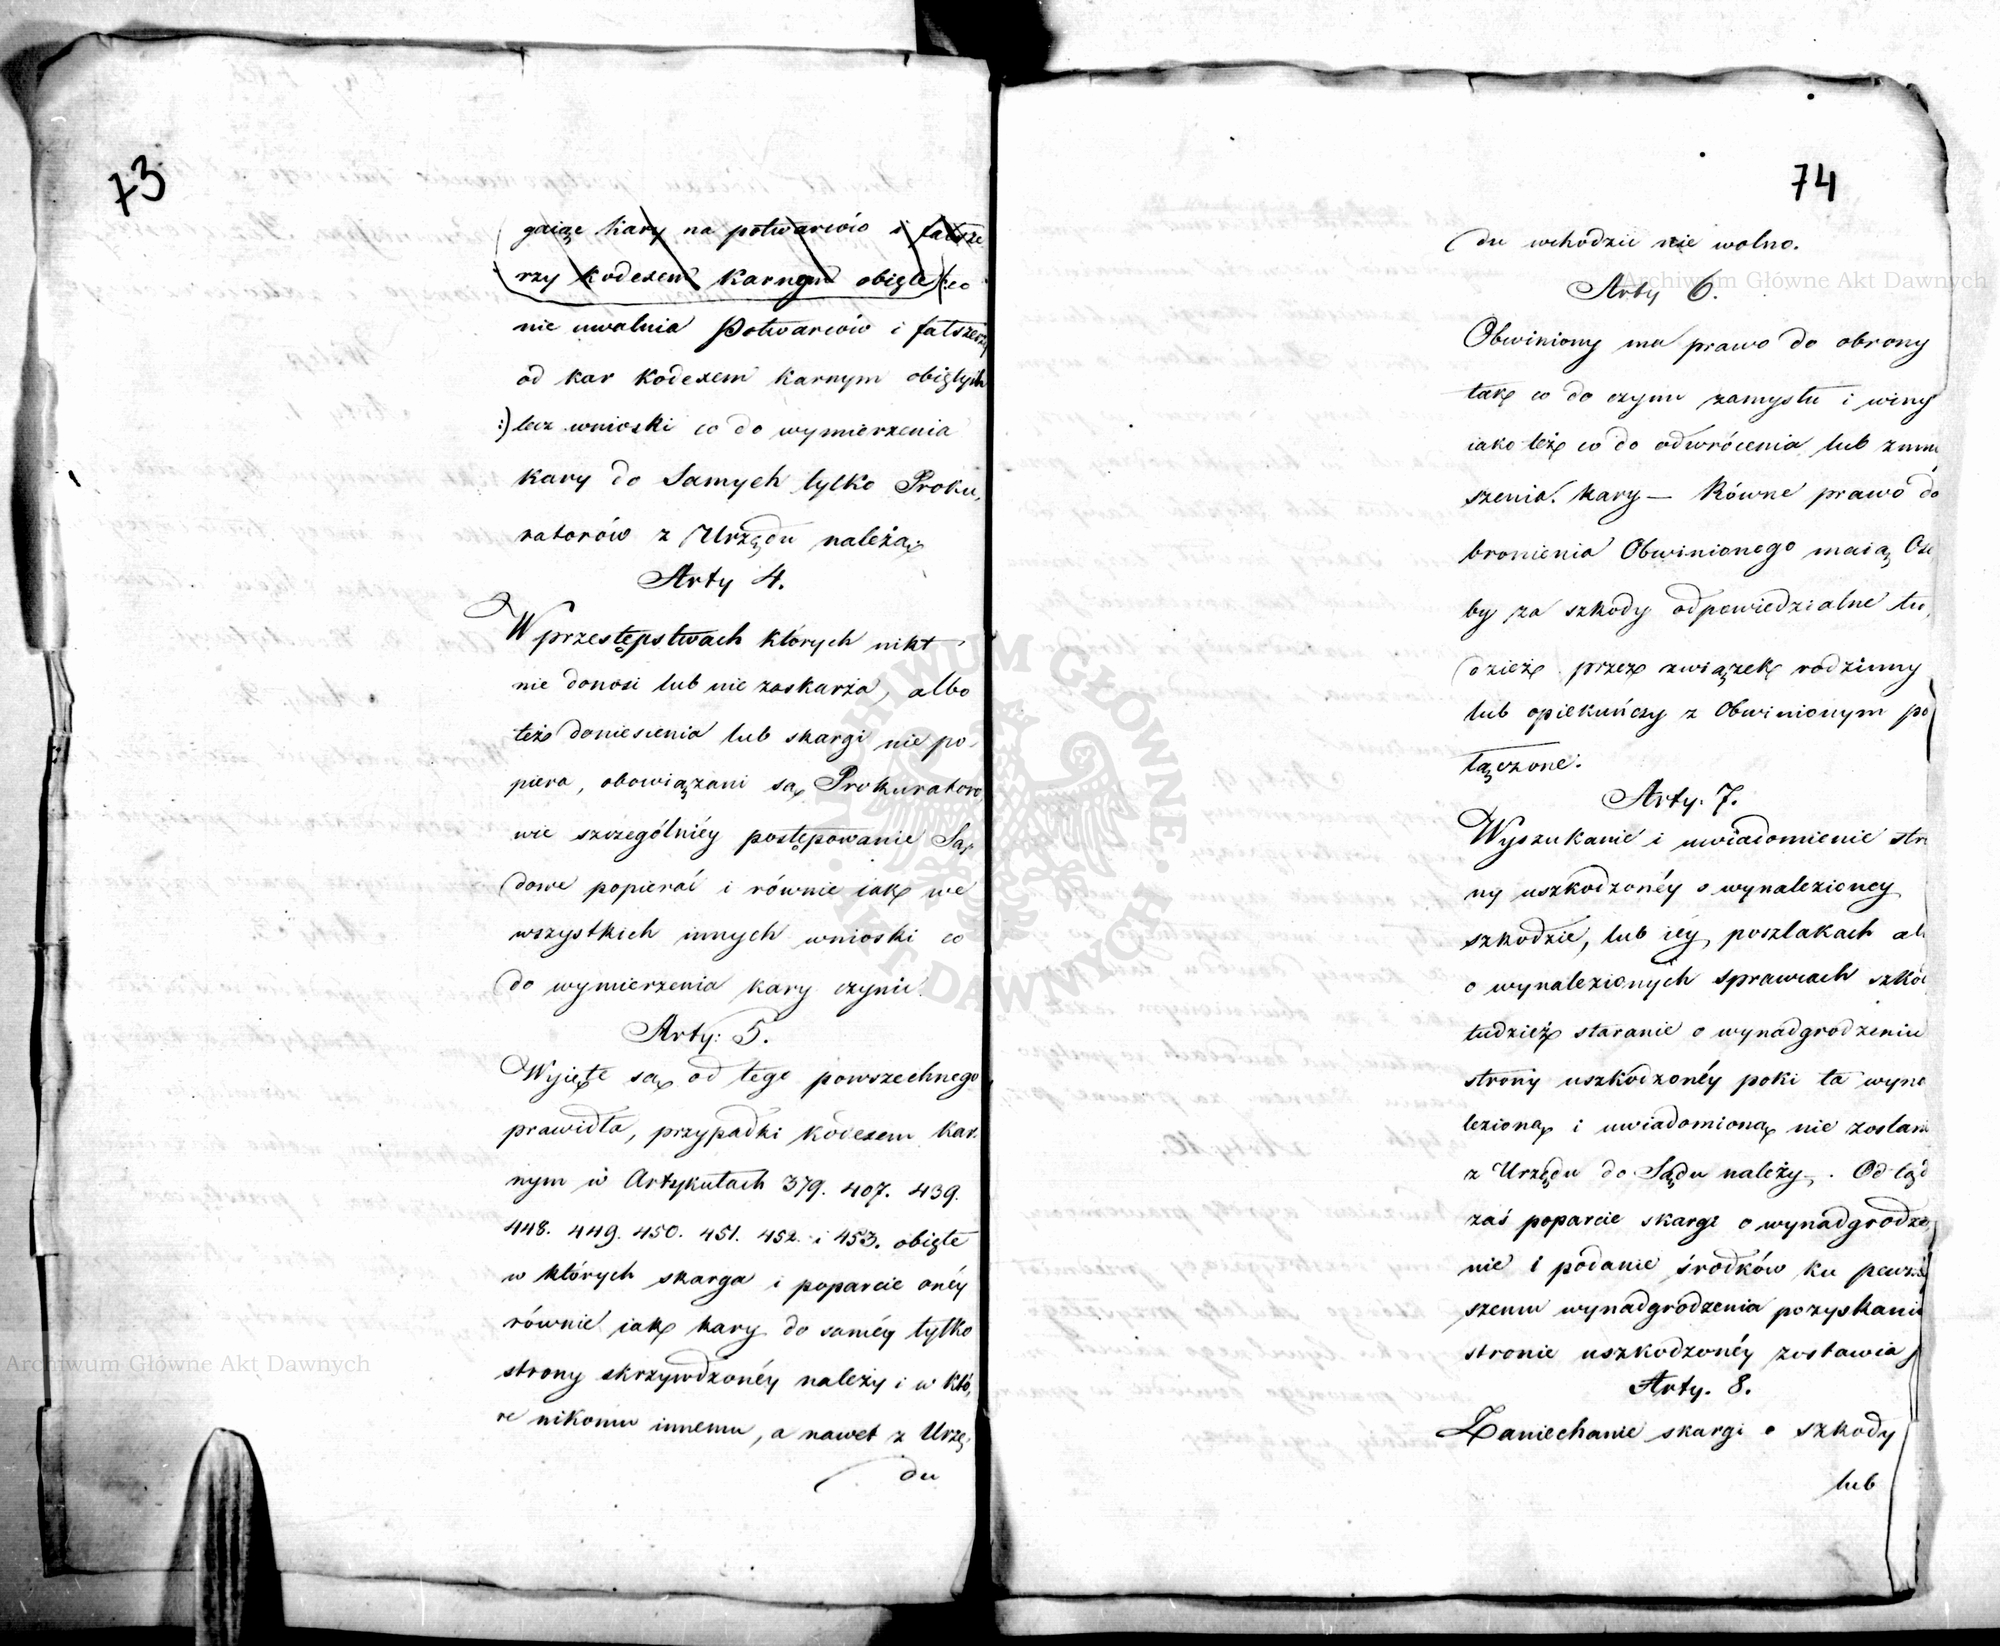 73
gaiące kary na potwarców i fałsze
rzy kodexem karnym obięte /:co
nie uwalnia Potwarców i fałszerzy
od kar kodexem karnym obiętych
:) lecz wnioski co do wymierzenia
kary do samych tylko Proku,
ratorów z Urzędu należą.
Arty 4.
W przestępstwach których nikt
nie donosi lub nie zaskarża, albo
też doniesienia lub skargi nie po,
piera, obowiązani są Prokuratoro
wie szczególniéy postępowanie Są,
dowe popierać i równie iak we
wszystkich innych wnioski co
do wymierzenia kary czynić.
Arty: 5.
Wyięte są od tego powszechnego
prawidła, przypadki kodexem kar,
nym w Artykułach 379. 407. 439.
448. 449. 450. 451. 452. i 453. obięte
w których skarga i poparcie onéy
równie iak kary do saméy tylko
strony skrzywdzonéy należy i w któ,
re nikomu innemu, a nawet z Urzę,
du
74
du wchodzić nie wolno.
Arty 6.
Obwiniony ma prawo do obrony
tak co do czynu zamysłu i winy
iako też co do odwrócenia lub zmniey
szenia kary — Równe prawo do
bronienia Obwinionego maią Oso
by za szkody odpowiedzialne tu,
dzież przez związek rodzinny
lub opiekuńczy z Obwinionym po
łączone.
Arty. 7.
Wyszukanie i uwiadomienie stro
ny uszkodzonéy o wynalezioney
szkodzie, lub iéy poszlakach al
o wynalezionych sprawcach szkó
tudzież staranie o wynadgrodzeniu
strony uszkodzonéy poki ta wyna
lezioną i uwiadomioną nie zostanie
z Urzędu do Sądu należy. Od tąd
zaś poparcie skargi o wynadgrodze
nie i podanie środków ku pewnie
szemu wynadgrodzenia pozyskaniu
stronie uszkodzonéy zostawia
Arty. 8.
Zaniechanie skargi o szkody
lub
Archiwum Główne Akt Dawnych
Archiwum Główne Akt Dawnych
ARCHIWUM GŁÓWNE AKT DAWNYCH